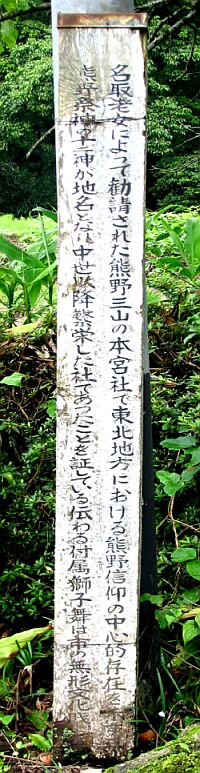 名取老女によって勧請された熊野三山の本宮社で東北地方における熊野信仰の中心的存在
熊野祭神の十二神が地名となり中世以降繁栄した社であったことを証している伝わる付属獅子舞は市の無形文化